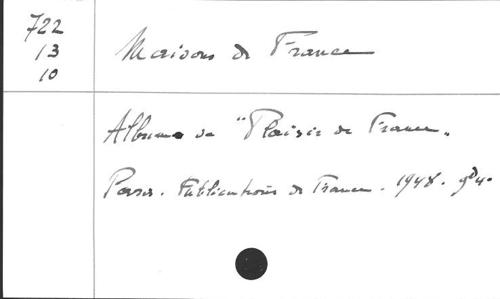 722
13
10
Maisons de France
Albums de "Plaisir de France".
Paris. Publications de France. 1948. gd 4º